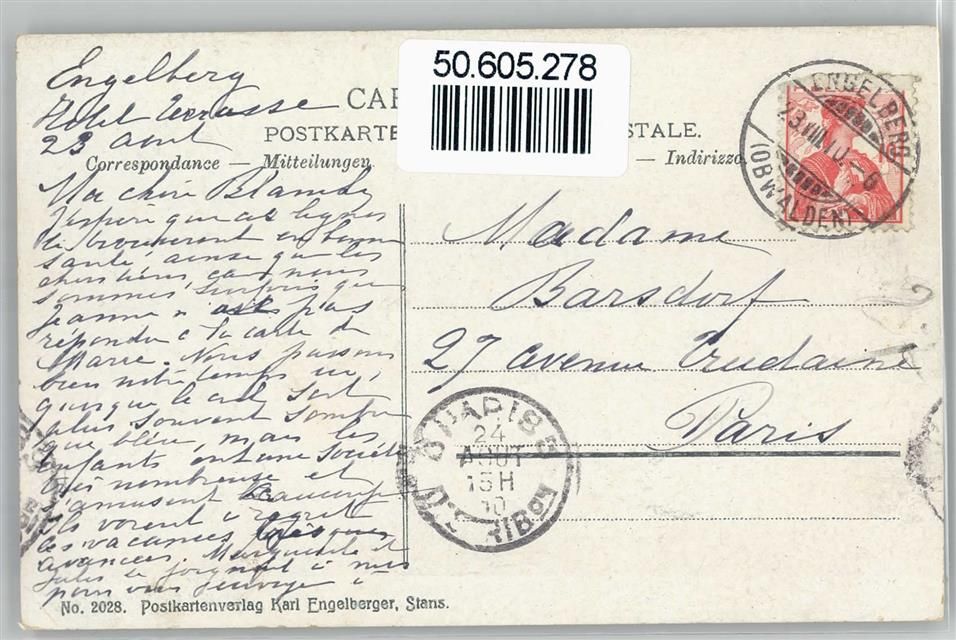 50.605.278
Engelberg
Hotel Terrasse
23 Aout
CAR
POSTKARTE
STALE.
Correspondance — Mitteilungen
— Indirizzo
ENGELBERG
23.VIII.10.-6
(OBWALDEN)
Ma chère Blanche
J'espère que ces lignes
te trouveront en bonne
santé, ainsi que les
chers tiens, car nous
sommes surpris que
Jeanne n'ait pas
répondu à la carte de
Marie. Nous passons
bien notre temps ici,
quoique le ciel soit
plus souvent sombre
que bleu, mais les
enfants ont une société
très nombreuse et
s'amusent beaucoup
Ils voient à regret
les vacances très
avancées. Marguerite et
Jules se joignent à moi
pour vous envoyer à
Madame
Barsdorf
27 avenue Trudaine
Paris
PARIS
24
AOUT
15H
10
DISTRIBON
No. 2028. Postkartenverlag Karl Engelberger, Stans.